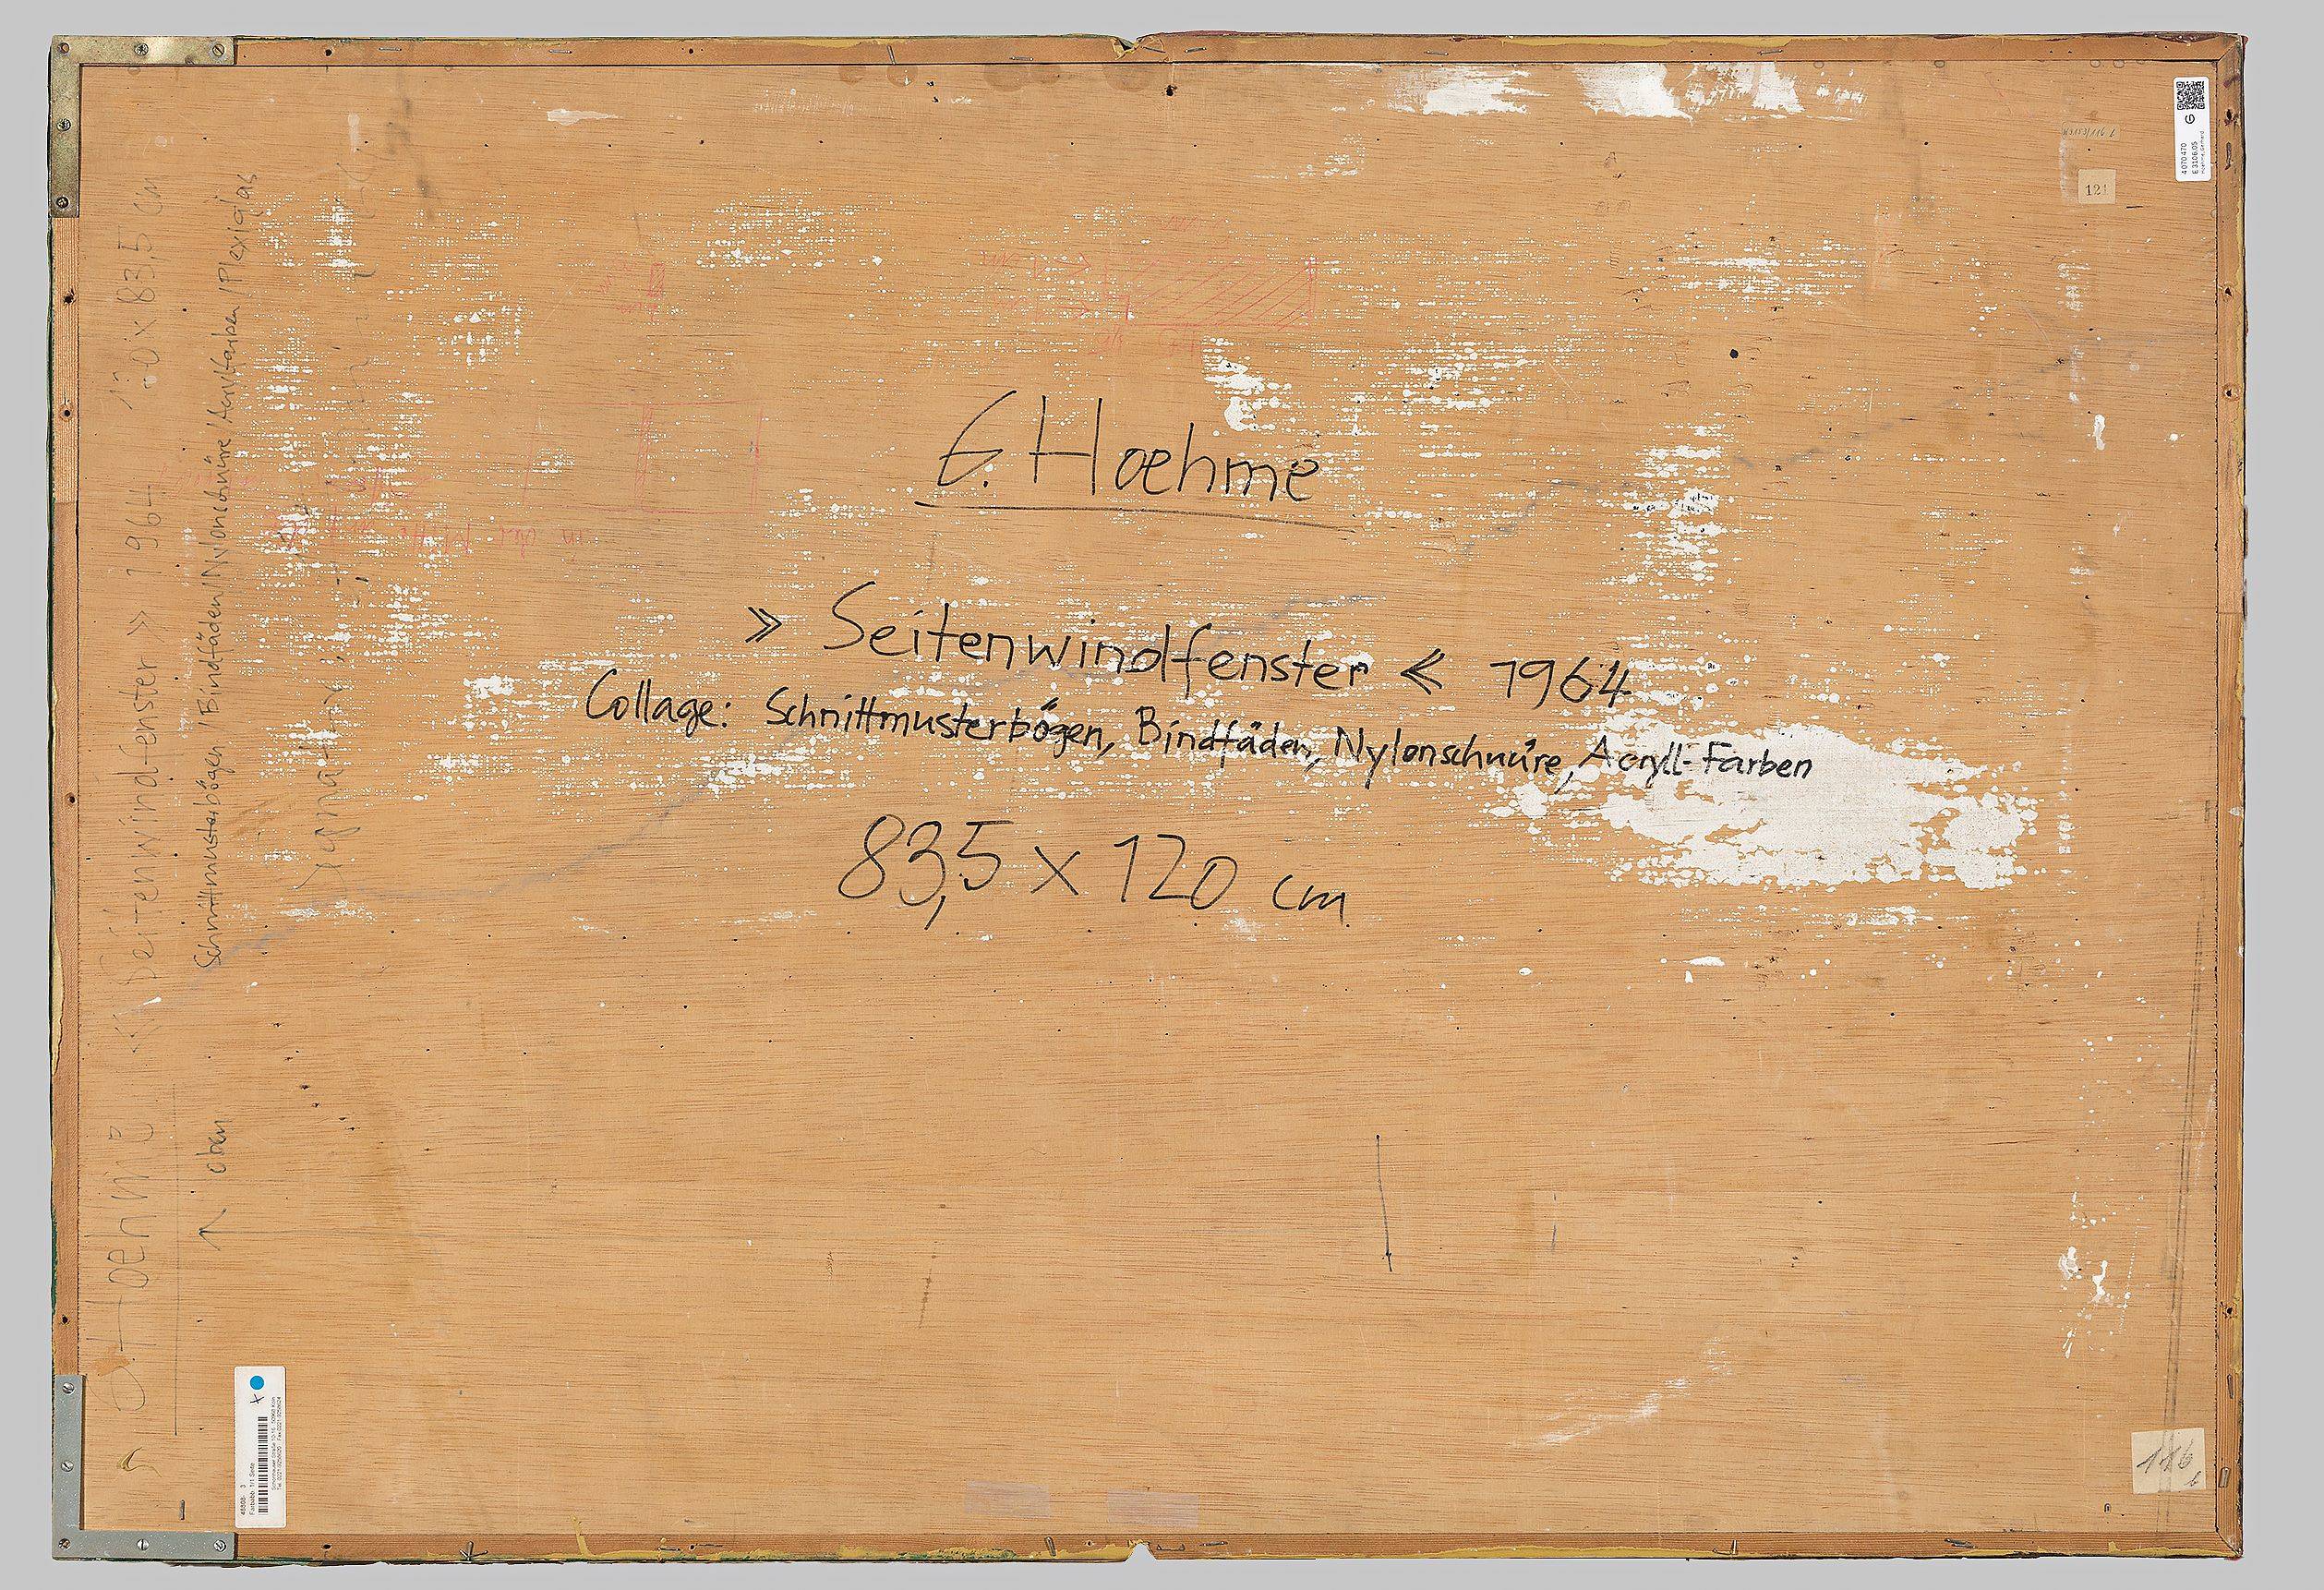 G. Hoehme
» Seitenwindfenster « 1964
Collage: Schnittmusterbögen, Bindfäden, Nylonschnüre, Acryll-Farben
83,5 x 120 cm
G. Hoehme « Seitenwindfenster » 1964 120 x 83,5 cm
Schnittmusterbögen / Bindfäden / Nylonschnüre / Acrylfarben / Plexiglas
↑ oben
Signatur
in der
4070470
E 3106.05
Hoehme, Gerhard
G
121
116
48868- 3
Farbabb. 1/1 Seite
x